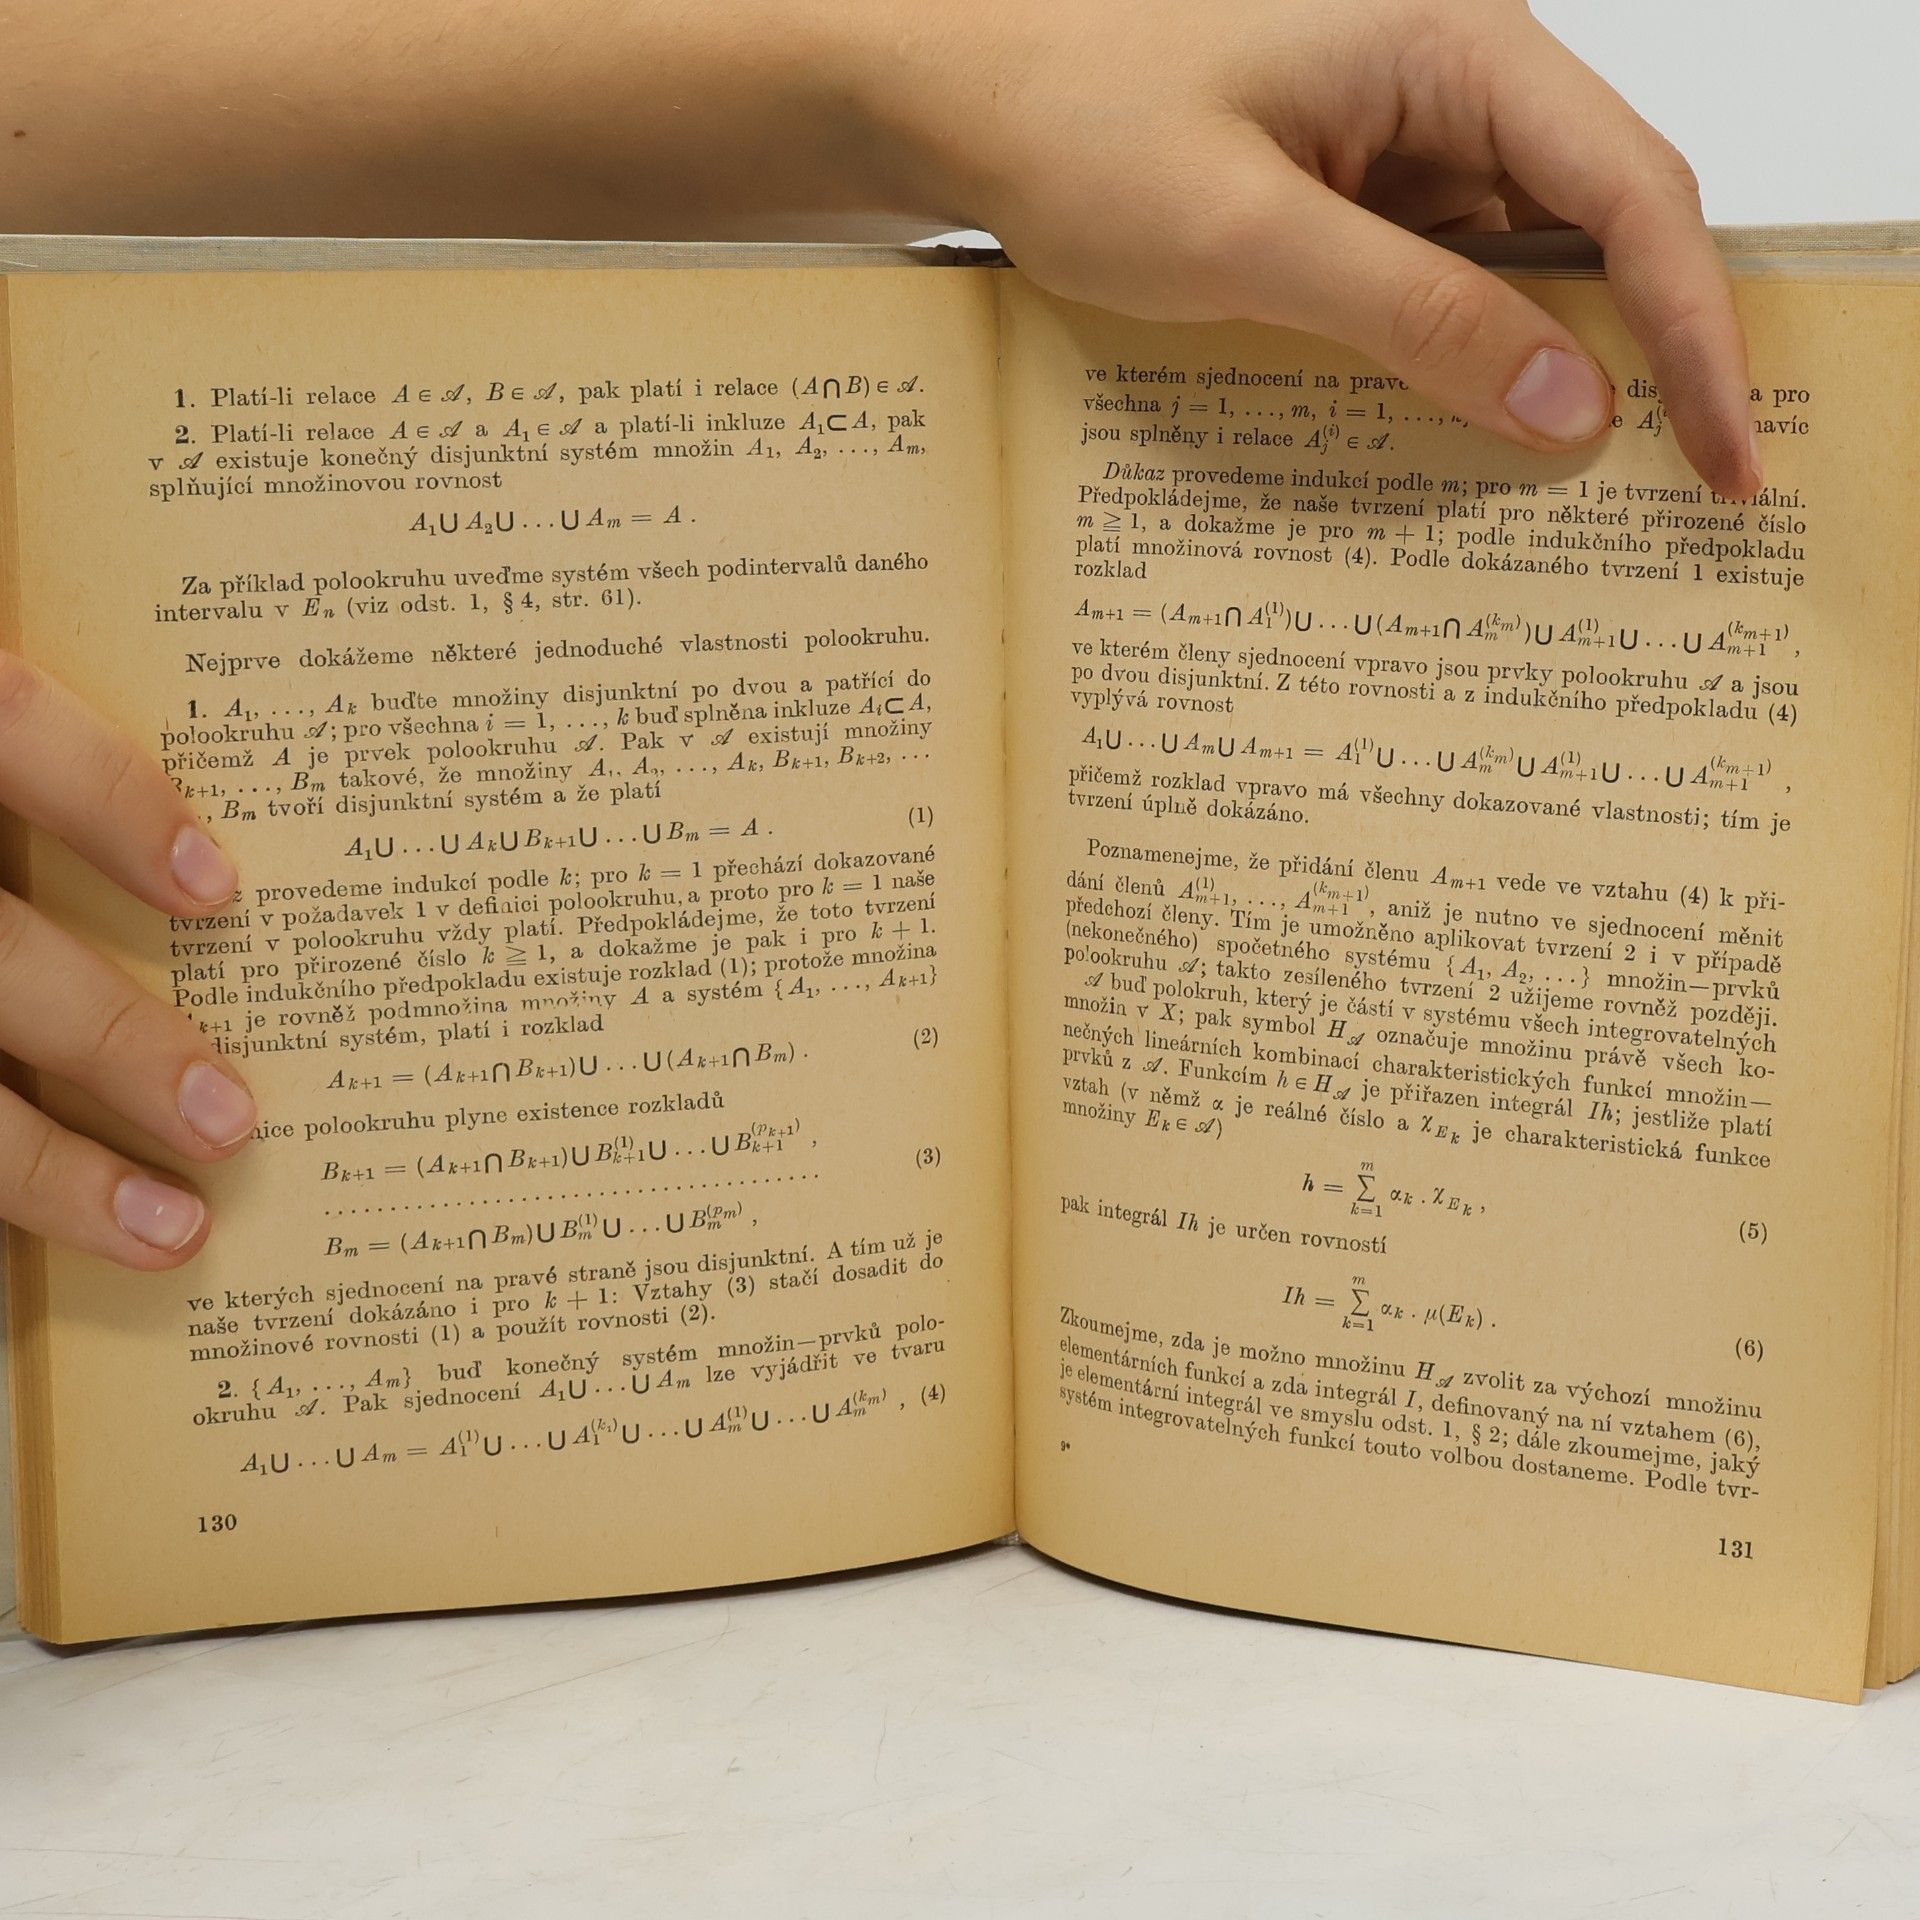 1. Platí-li relace A ∈ 𝒜, B ∈ 𝒜, pak platí i relace (A ⋂ B) ∈ 𝒜.
2. Platí-li relace A ∈ 𝒜 a A₁ ∈ 𝒜 a platí-li inkluze A₁ ⊂ A, pak
v 𝒜 existuje konečný disjunktní systém množin A₁, A₂, ..., Aₘ,
splňující množinovou rovnost
A₁ ⋃ A₂ ⋃ ... ⋃ Aₘ = A .
Za příklad polookruhu uveďme systém všech podintervalů daného
intervalu v Eₙ (viz odst. 1, § 4, str. 61).
Nejprve dokážeme některé jednoduché vlastnosti polookruhu.
1. A₁, ..., Aₖ buďte množiny disjunktní po dvou a patřící do
polookruhu 𝒜; pro všechna i = 1, ..., k buď splněna inkluze Aᵢ ⊂ A,
přičemž A je prvek polookruhu 𝒜. Pak v 𝒜 existují množiny
Bₖ₊₁, ..., Bₘ takové, že množiny A₁, A₂, ..., Aₖ, Bₖ₊₁, Bₖ₊₂, ...
., Bₘ tvoří disjunktní systém a že platí
A₁ ⋃ ... ⋃ Aₖ ⋃ Bₖ₊₁ ⋃ ... ⋃ Bₘ = A . (1)
provedeme indukcí podle k; pro k = 1 přechází dokazované
tvrzení v požadavek 1 v definici polookruhu, a proto pro k = 1 naše
tvrzení v polookruhu vždy platí. Předpokládejme, že toto tvrzení
platí pro přirozené číslo k ≧ 1, a dokažme je pak i pro k + 1.
Podle indukčního předpokladu existuje rozklad (1); protože množina
Aₖ₊₁ je rovněž podmnožina množiny A a systém {A₁, ..., Aₖ₊₁}
disjunktní systém, platí i rozklad
Aₖ₊₁ = (Aₖ₊₁ ⋂ Bₖ₊₁) ⋃ ... ⋃ (Aₖ₊₁ ⋂ Bₘ) . (2)
polookruhu plyne existence rozkladů
Bₖ₊₁ = (Aₖ₊₁ ⋂ Bₖ₊₁) ⋃ B_{k+1}^{(1)} ⋃ ... ⋃ B_{k+1}^{(p_{k+1})} ,
........................................ (3)
Bₘ = (Aₖ₊₁ ⋂ Bₘ) ⋃ B_m^{(1)} ⋃ ... ⋃ B_m^{(p_m)} ,
ve kterých sjednocení na pravé straně jsou disjunktní. A tím už je
naše tvrzení dokázáno i pro k + 1: Vztahy (3) stačí dosadit do
množinové rovnosti (1) a použít rovnosti (2).
2. {A₁, ..., Aₘ} buď konečný systém množin—prvků polo-
okruhu 𝒜. Pak sjednocení A₁ ⋃ ... ⋃ Aₘ lze vyjádřit ve tvaru
A₁ ⋃ ... ⋃ Aₘ = A_1^{(1)} ⋃ ... ⋃ A_1^{(k_1)} ⋃ ... ⋃ A_m^{(1)} ⋃ ... ⋃ A_m^{(k_m)} , (4)
130
ve kterém sjednocení na a pro
všechna j = 1, ..., m, i = 1, ..., navíc
jsou splněny i relace A_j^{(i)} ∈ 𝒜.
Důkaz provedeme indukcí podle m; pro m = 1 je tvrzení triviální.
Předpokládejme, že naše tvrzení platí pro některé přirozené číslo
m ≧ 1, a dokažme je pro m + 1; podle indukčního předpokladu
platí množinová rovnost (4). Podle dokázaného tvrzení 1 existuje
rozklad
A_{m+1} = (A_{m+1} ⋂ A_1^{(1)}) ⋃ ... ⋃ (A_{m+1} ⋂ A_m^{(k_m)}) ⋃ A_{m+1}^{(1)} ⋃ ... ⋃ A_{m+1}^{(k_{m+1})} ,
ve kterém členy sjednocení vpravo jsou prvky polookruhu 𝒜 a jsou
po dvou disjunktní. Z této rovnosti a z indukčního předpokladu (4)
vyplývá rovnost
A₁ ⋃ ... ⋃ Aₘ ⋃ A_{m+1} = A_1^{(1)} ⋃ ... ⋃ A_m^{(k_m)} ⋃ A_{m+1}^{(1)} ⋃ ... ⋃ A_{m+1}^{(k_{m+1})} ,
přičemž rozklad vpravo má všechny dokazované vlastnosti; tím je
tvrzení úplně dokázáno.
Poznamenejme, že přidání členu A_{m+1} vede ve vztahu (4) k při-
dání členů A_{m+1}^{(1)}, ..., A_{m+1}^{(k_{m+1})}, aniž je nutno ve sjednocení měnit
předchozí členy. Tím je umožněno aplikovat tvrzení 2 i v případě
(nekonečného) spočetného systému {A₁, A₂, ...} množin—prvků
polookruhu 𝒜; takto zesíleného tvrzení 2 užijeme rovněž později.
𝒜 buď polokruh, který je částí v systému všech integrovatelných
množin v X; pak symbol H_𝒜 označuje množinu právě všech ko-
nečných lineárních kombinací charakteristických funkcí množin—
prvků z 𝒜. Funkcím h ∈ H_𝒜 je přiřazen integrál Ih; jestliže platí
vztah (v němž α je reálné číslo a χ_{E_k} je charakteristická funkce
množiny Eₖ ∈ 𝒜)
h = ∑_{k=1}^{m} αₖ . χ_{E_k} , (5)
pak integrál Ih je určen rovností
Ih = ∑_{k=1}^{m} αₖ . μ(Eₖ) . (6)
Zkoumejme, zda je možno množinu H_𝒜 zvolit za výchozí množinu
elementárních funkcí a zda integrál I, definovaný na ní vztahem (6),
je elementární integrál ve smyslu odst. 1, § 2; dále zkoumejme, jaký
systém integrovatelných funkcí touto volbou dostaneme. Podle tvr-
9*
131